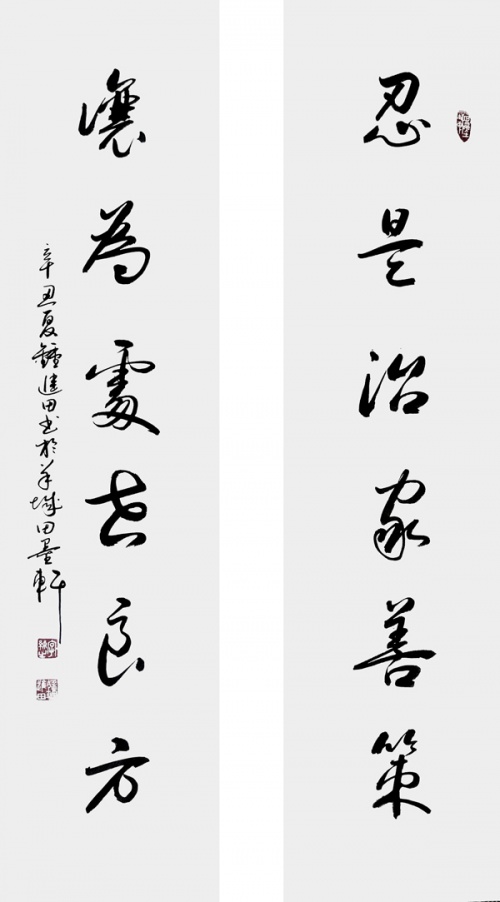 忍是治家善策
讓為處世良方
辛丑夏鍾進田书於羊城田墨軒